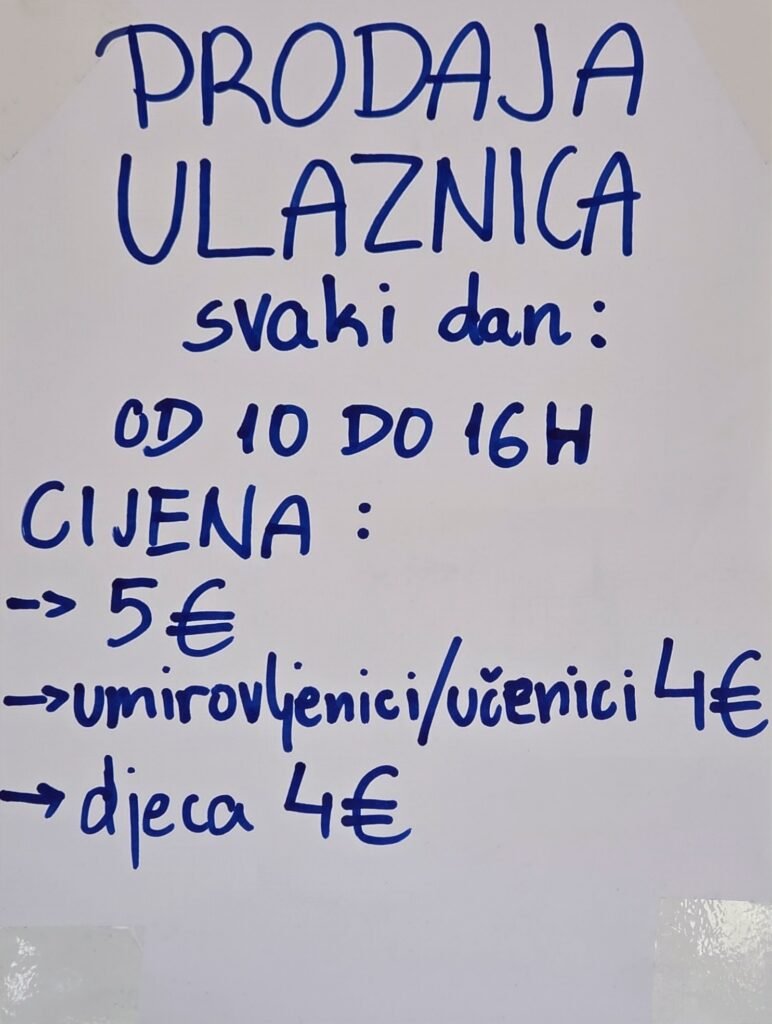 PRODAJA
ULAZNICA
svaki dan:
OD 10 DO 16H
CIJENA:
-> 5€
-> umirovljenici/učenici 4€
-> djeca 4€